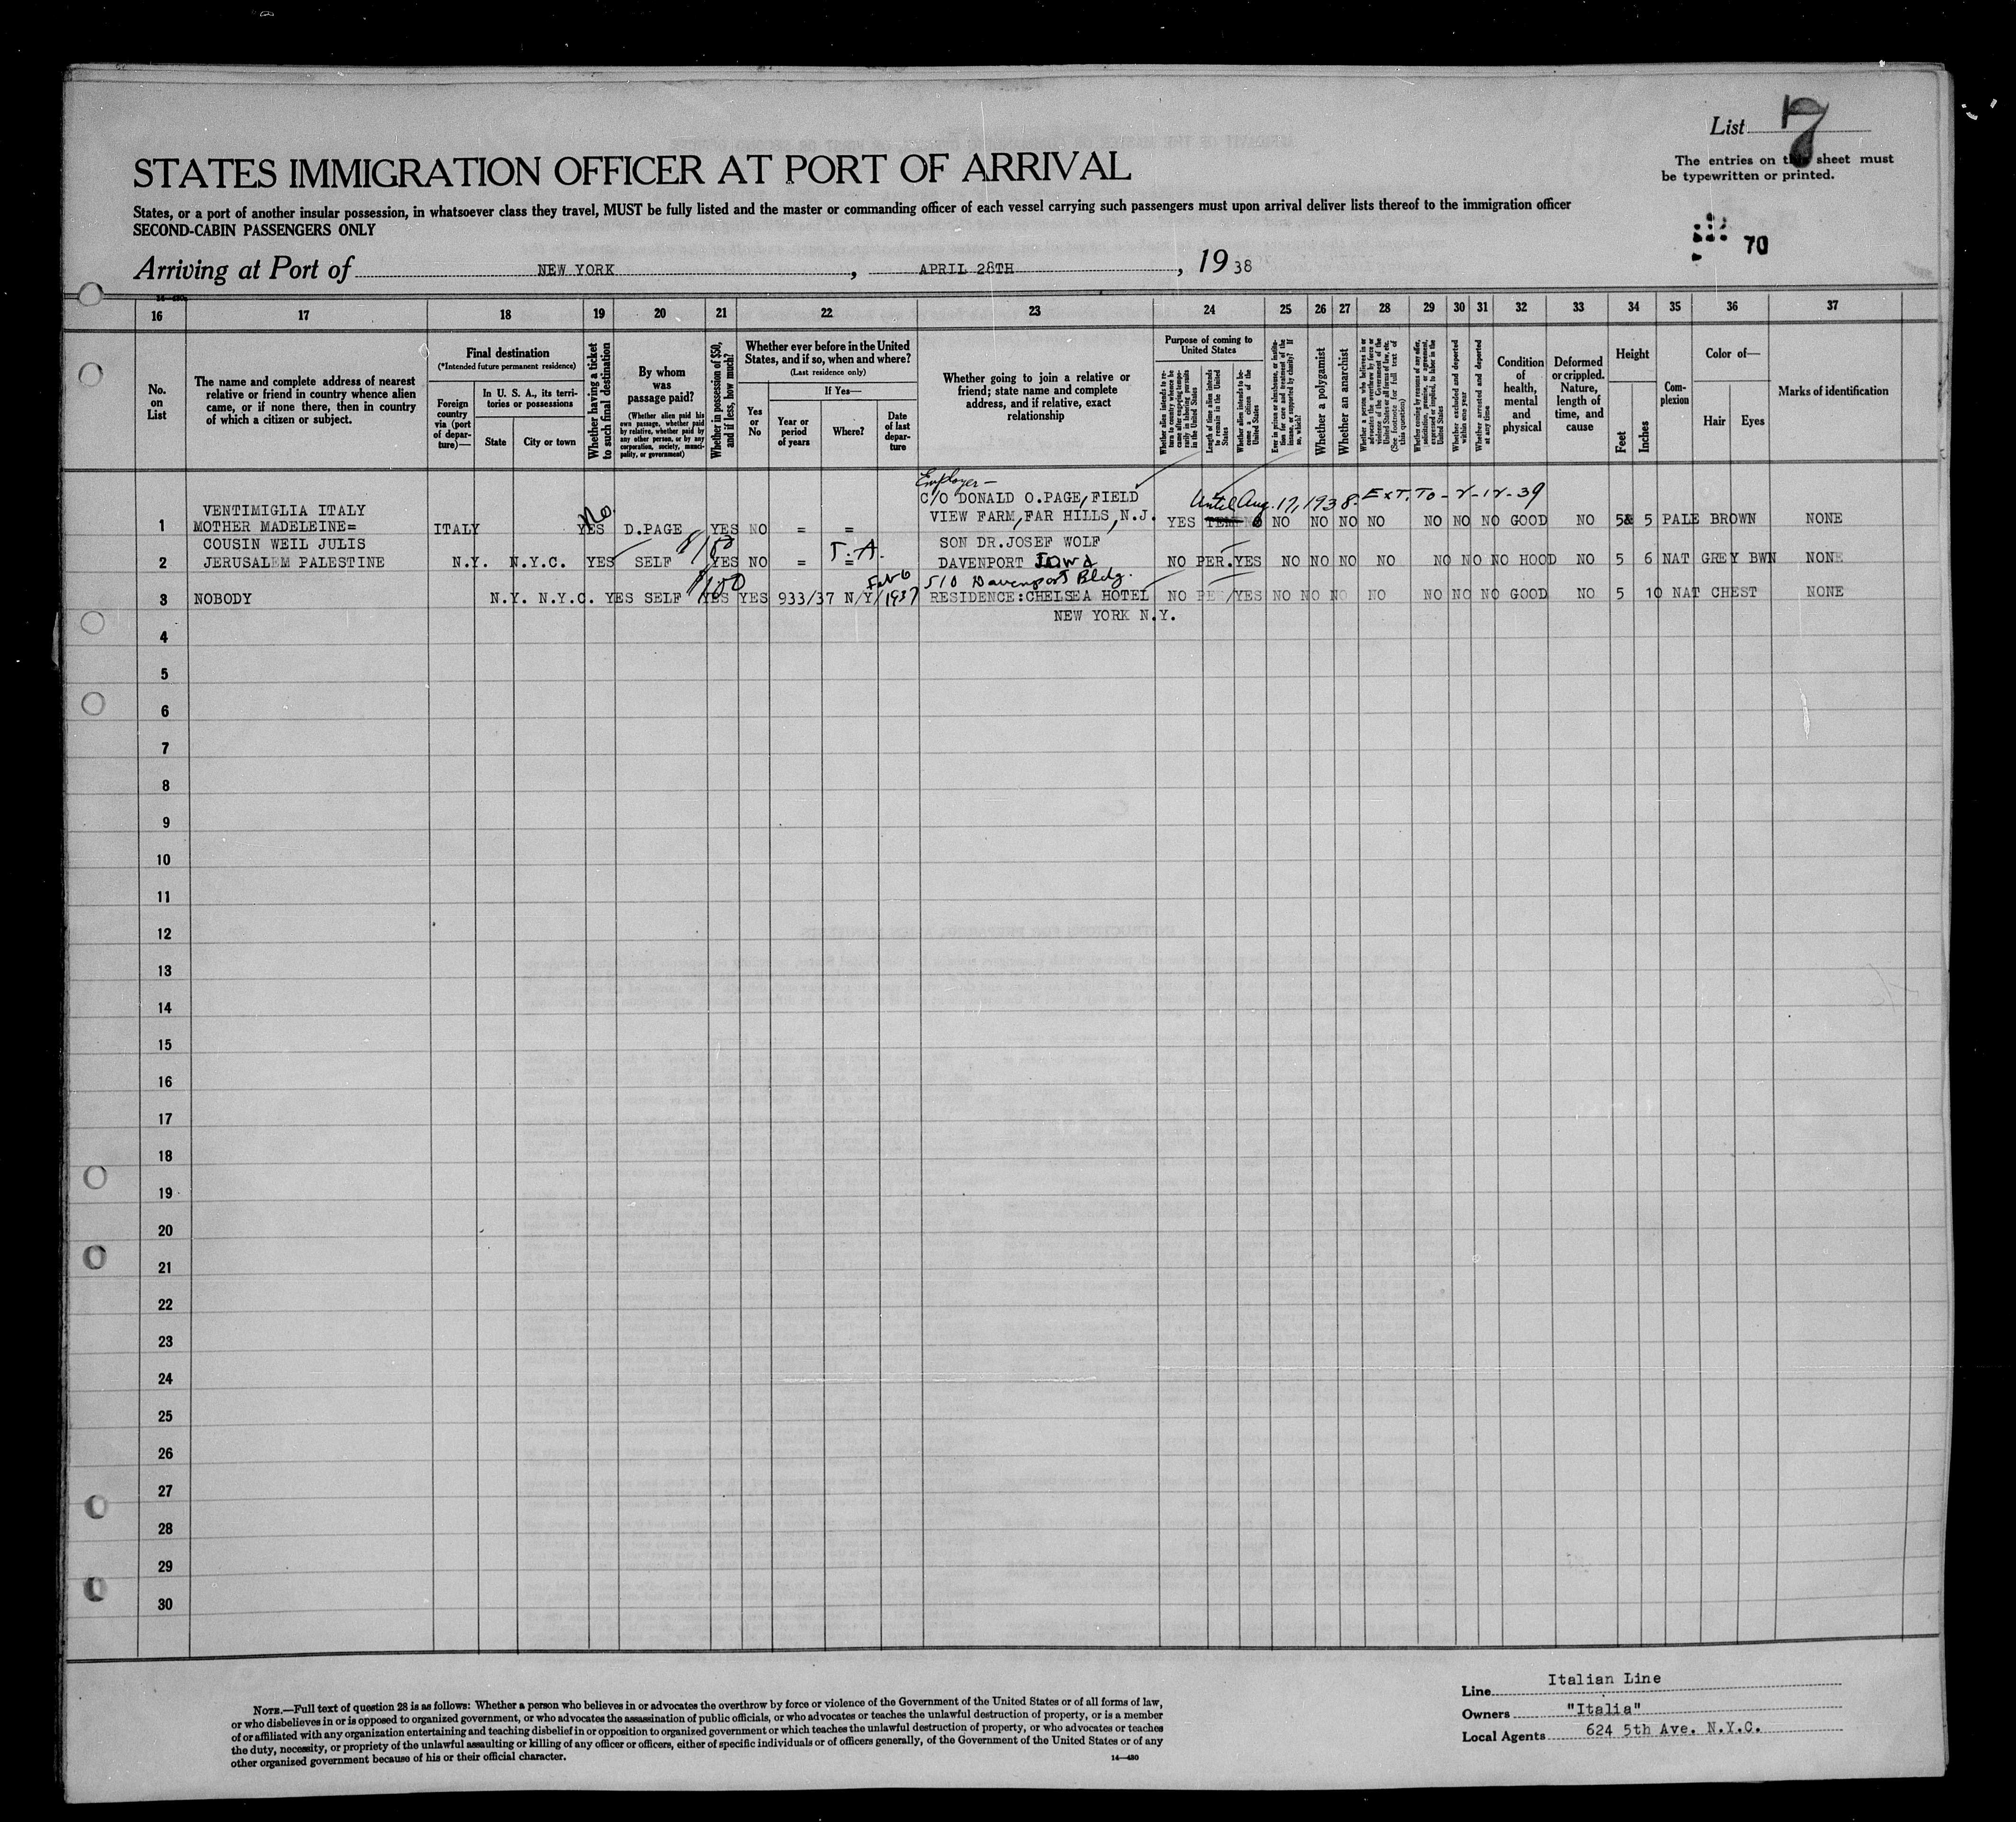 List 7
The entries on this sheet must
be typewritten or printed.
STATES IMMIGRATION OFFICER AT PORT OF ARRIVAL
States, or a port of another insular possession, in whatsoever class they travel, MUST be fully listed and the master or commanding officer of each vessel carrying such passengers must upon arrival deliver lists thereof to the immigration officer
SECOND-CABIN PASSENGERS ONLY
70
Arriving at Port of NEW YORK , APRIL 28TH , 19 38
16 17 18 19 20 21 22 23 24 25 26 27 28 29 30 31 32 33 34 35 36 37
No.
on
List
The name and complete address of nearest
relative or friend in country whence alien
came, or if none there, then in country
of which a citizen or subject.
Final destination
(*Intended future permanent residence)
Foreign
country
via (port
of depar-
ture)—
In U. S. A., its terri-
tories or possessions
State
City or town
Whether having a ticket
to such final destination
By whom
was
passage paid?
(Whether alien paid his
own passage, whether paid
by relative, whether paid by
any other person, or by any
corporation, society, munici-
pality, or government)
Whether in possession of $50,
and if less, how much?
Whether ever before in the United
States, and if so, when and where?
(Last residence only)
Yes
or
No
If Yes—
Year or
period
of years
Where?
Date
of last
depar-
ture
Whether going to join a relative or
friend; state name and complete
address, and if relative, exact
relationship
Purpose of coming to
United States
Whether alien intends to re-
turn to country whence he
came after engaging tempo-
rarily in laboring pursuits
in the United States
Length of time alien intends
to remain in the United
States
Whether alien intends to be-
come a citizen of the
United States
Ever in prison or almshouse, or institu-
tion for care and treatment of the
insane, or supported by charity? If
so, which?
Whether a polygamist
Whether an anarchist
Whether a person who believes in or
advocates the overthrow by force or
violence of the Government of the
United States or all forms of law, etc.
(See footnote for full text of
this question)
Whether coming by reason of any offer,
solicitation, promise, or agreement,
expressed or implied, to labor in the
United States
Whether excluded and deported
within one year
Whether arrested and deported
at any time
Condition
of
health,
mental
and
physical
Deformed
or crippled.
Nature,
length of
time, and
cause
Height
Feet
Inches
Com-
plexion
Color of—
Hair
Eyes
Marks of identification
Employer—
VENTIMIGLIA ITALY C/O DONALD O.PAGE, FIELD Until Aug. 17, 1938 - EXT. To - 2-12-39
1 MOTHER MADELEINE= ITALY No. YES D.PAGE YES NO = = VIEW FARM, FAR HILLS, N.J. YES NO NO NO NO NO NO NO GOOD NO 5 5 PALE BROWN NONE
COUSIN WEIL JULIS $150 T.A. SON DR.JOSEF WOLF
2 JERUSALEM PALESTINE N.Y. N.Y.C. YES SELF YES NO = = DAVENPORT Iowa NO PER. YES NO NO NO NO NO NO NO HOOD NO 5 6 NAT GREY BWN NONE
$100 Feb 6 510 Davenport Bldg.
3 NOBODY N.Y. N.Y.C. YES SELF YES YES 933/37 N/Y/ 1937 RESIDENCE:CHELSEA HOTEL NO PE /YES NO NO NO NO NO NO NO GOOD NO 5 10 NAT CHEST NONE
NEW YORK N.Y.
4
5
6
7
8
9
10
11
12
13
14
15
16
17
18
19
20
21
22
23
24
25
26
27
28
29
30
NOTE.—Full text of question 28 is as follows: Whether a person who believes in or advocates the overthrow by force or violence of the Government of the United States or of all forms of law,
or who disbelieves in or is opposed to organized government, or who advocates the assassination of public officials, or who advocates or teaches the unlawful destruction of property, or is a member
of or affiliated with any organization entertaining and teaching disbelief in or opposition to organized government or which teaches the unlawful destruction of property, or who advocates or teaches
the duty, necessity, or propriety of the unlawful assaulting or killing of any officer or officers, either of specific individuals or of officers generally, of the Government of the United States or of any
other organized government because of his or their official character.
14—480
Line Italian Line
Owners "Italia"
Local Agents 624 5th Ave. N.Y.C.